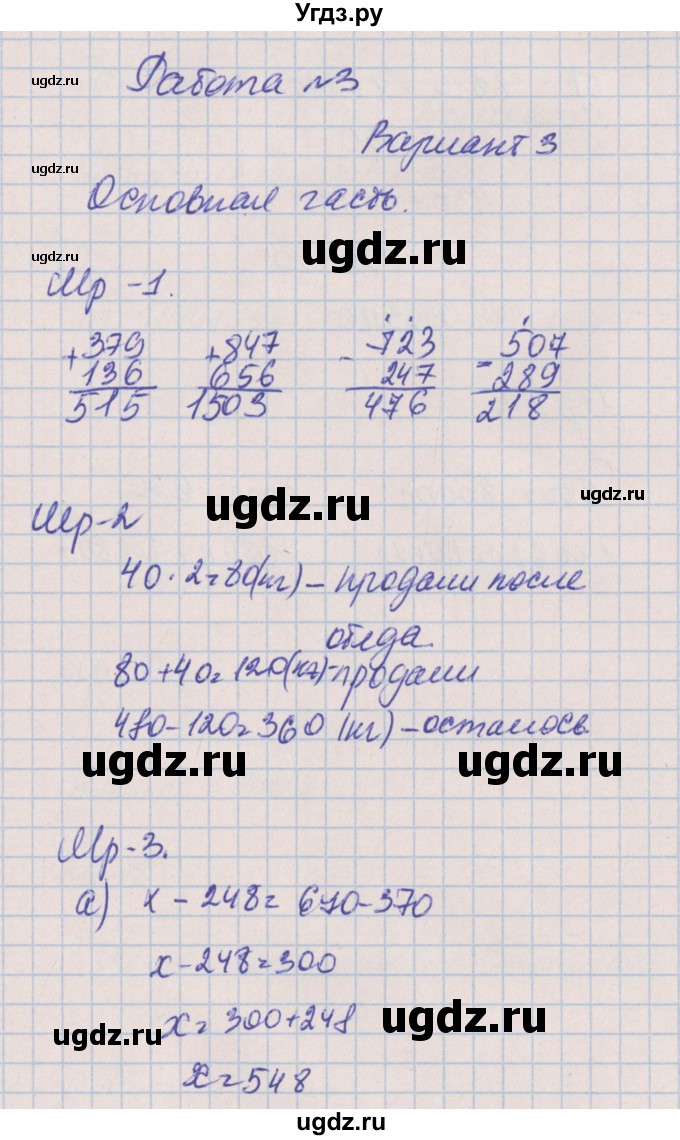 Угдз.ру
ugdz.ru
Работа №3
Вариант 3
ugdz.ru
Основная часть.
ugdz.ru
ugdz.ru
Тр -1.
+379 +847 -723 -507
136 656 247 289
515 1503 476 218
ugdz.ru
ugdz.ru
Тр-2
40·2=80(кг) – продали после
обеда.
80+40=120(кг)-продали
480-120=360 (кг) – осталось
ugdz.ru ugdz.ru
Тр-3.
а) х - 248 = 670-370
х-248=300
ugdz.ru
ugdz.ru
х = 300+248
х=548
ugdz.ru